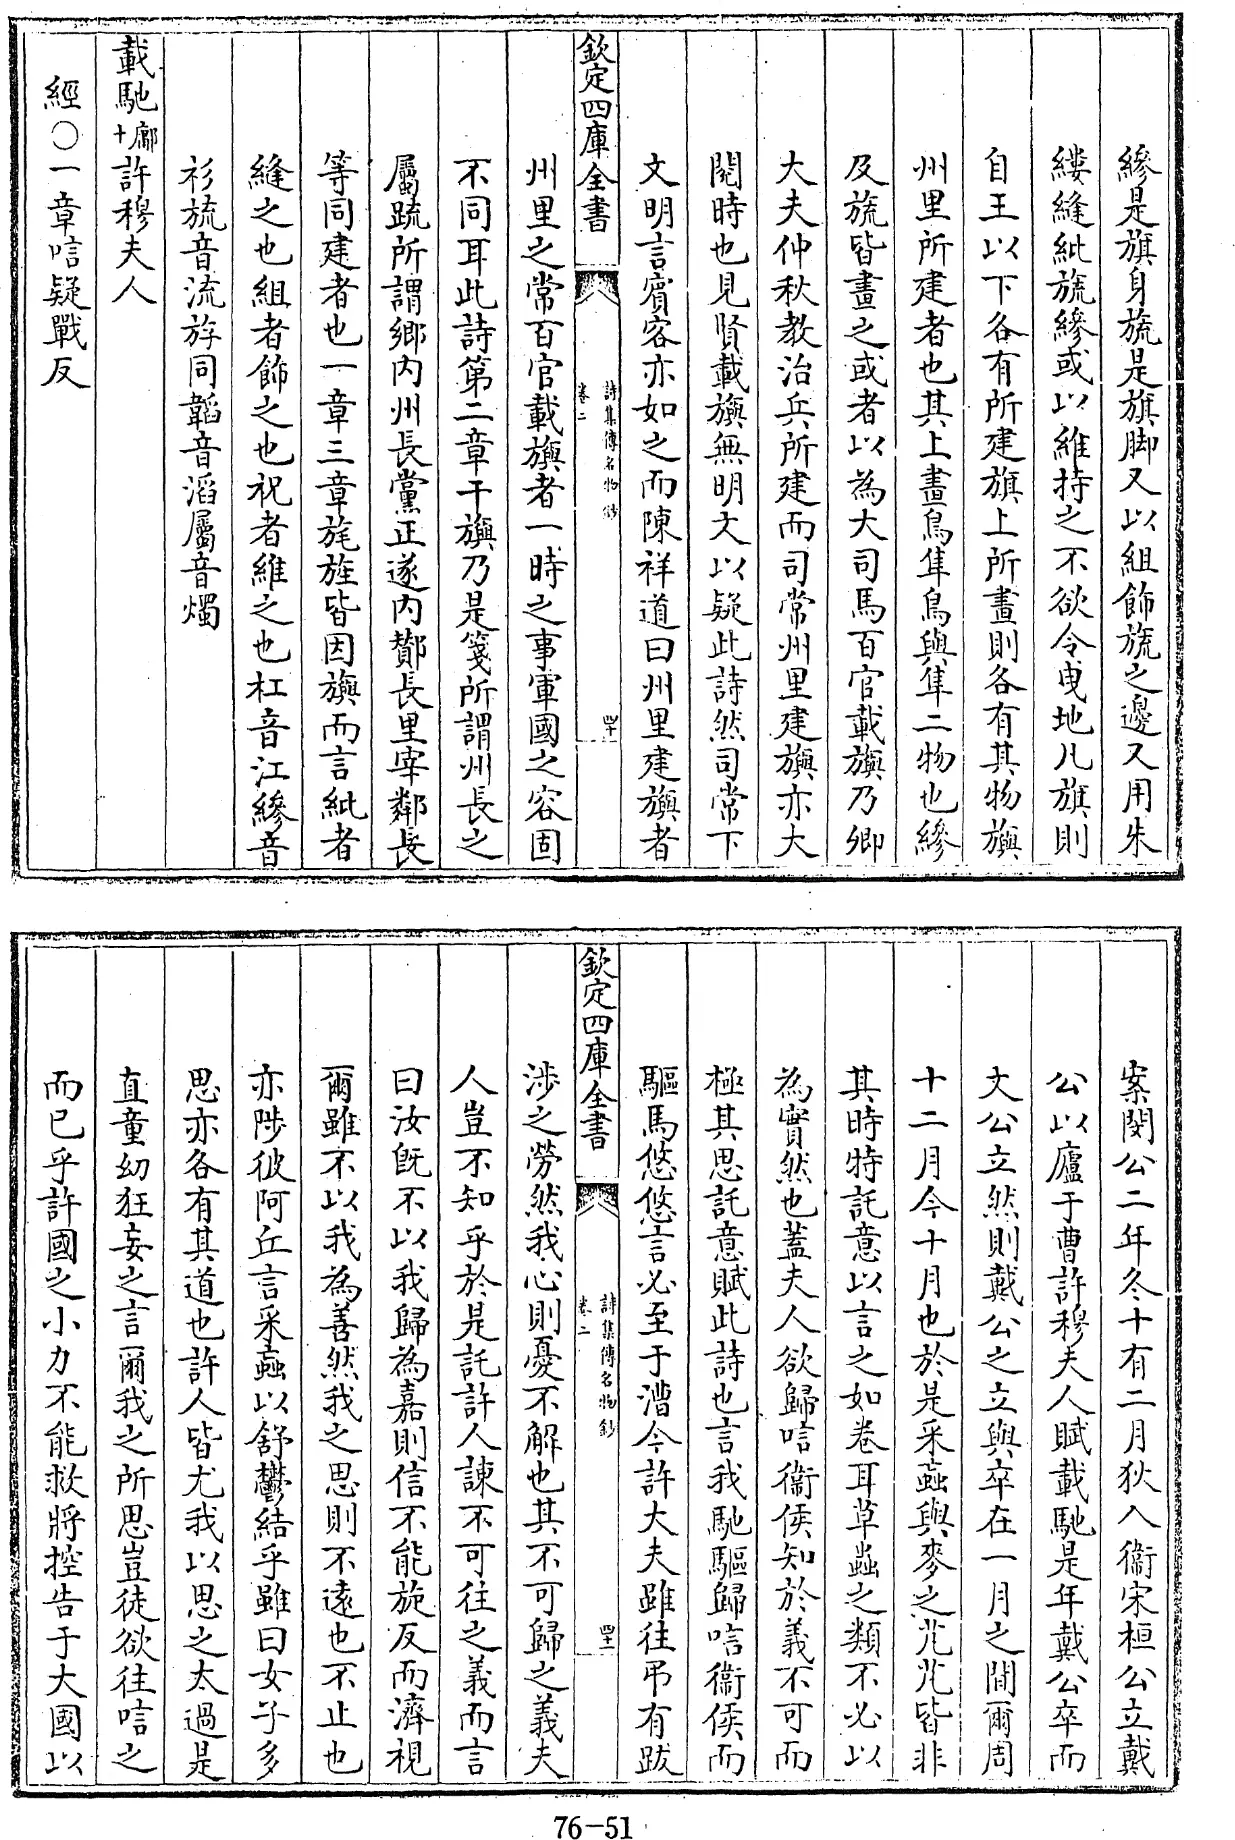 縿是旗身旒是旗脚又以組飾旒之邊又用朱
縷縫紕旒縿或以維持之不欲令曳地凡旗則
自王以下各有所建旗上所畫則各有其物旟
州里所建者也其上畫鳥隼鳥與隼二物也縿
及旒皆畫之或者以為大司馬百官載旟乃卿
大夫仲秋教治兵所建而司常州里建旟亦大
閱時也見賢載旟無明文以疑此詩然司常下
文明言賓客亦如之而陳祥道曰州里建旟者
欽定四庫全書
詩集傳名物鈔
卷二
四十
州里之常百官載旟者一時之事軍國之容固
不同耳此詩第二章干旟乃是箋所謂州長之
屬䟽所謂鄉内州長黨正遂内酇長里宰鄰長
等同建者也一章三章旄旌皆因旟而言紕者
縫之也組者飾之也祝者維之也杠音江縿音
衫旒音流斿同韜音滔屬音燭
載馳鄘十許穆夫人
經○一章唁疑戰反
案閔公二年冬十有二月狄入衞宋桓公立戴
公以廬于曹許穆夫人賦載馳是年戴公卒而
文公立然則戴公之立與卒在一月之間爾周
十二月今十月也於是采蝱與麥之芃芃皆非
其時特託意以言之如卷耳草蟲之類不必以
為實然也蓋夫人欲歸唁衞侯知於義不可而
極其思託意賦此詩也言我馳驅歸唁衞侯而
驅馬悠悠言必至于漕今許大夫雖往弔有跋
欽定四庫全書
詩集傳名物鈔
卷二
四十一
涉之勞然我心則憂不解也其不可歸之義夫
人豈不知乎於是託許人諫不可往之義而言
曰汝旣不以我歸為嘉則信不能旋反而濟視
爾雖不以我為善然我之思則不遠也不止也
亦陟彼阿丘言采蝱以舒鬱結乎雖曰女子多
思亦各有其道也許人皆尤我以思之太過是
直童幼狂妄之言爾我之所思豈徒欲往唁之
而已乎許國之小力不能救將控告于大國以
76-51